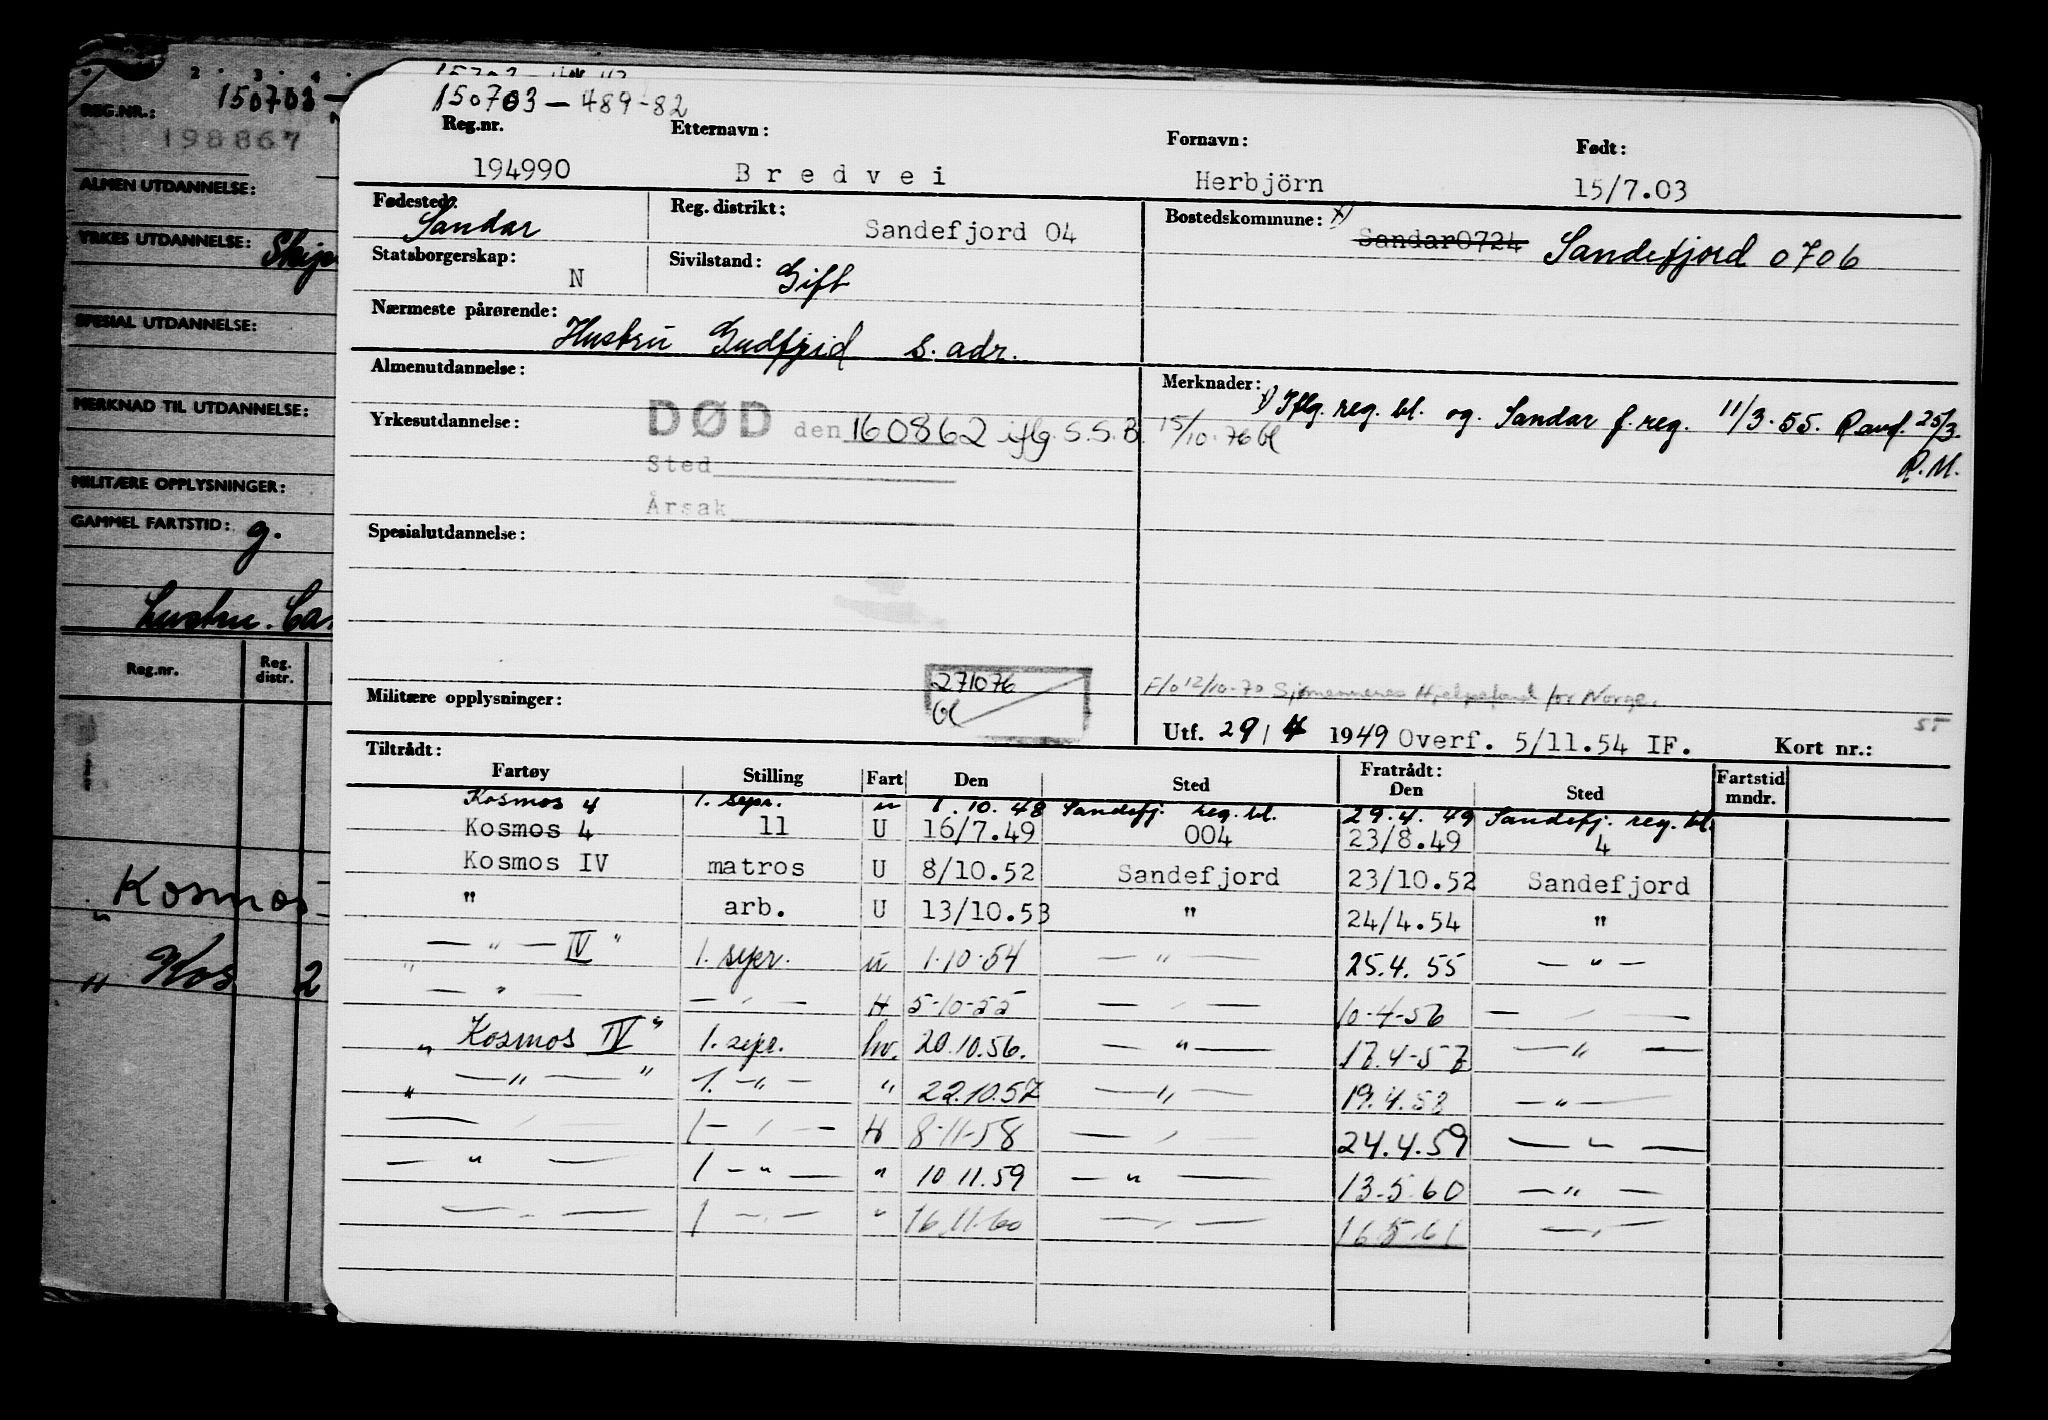 2 3 4
REG.NR.: 150703-
198867
ALMEN UTDANNELSE:
YRKES UTDANNELSE:
SPESIAL UTDANNELSE:
MERKNAD TIL UTDANNELSE:
MILITÆRE OPPLYSNINGER:
GAMMEL FARTSTID: g.
Reg.nr. Reg. distr.
" Kosmos
" Kos 2
150703-489-82
Reg.nr. Etternavn: Fornavn: Født:
194990 Bredvei Herbjörn 15/7.03
Fødested: Sandar Reg. distrikt: Sandefjord 04 Bostedskommune: x) Sandar0724 Sandefjord 0706
Statsborgerskap: N Sivilstand: Gift
Nærmeste pårørende: Hustru s. adr.
Almenutdannelse: Merknader: x) Iflg. reg. bl. og. Sandar f.reg. 11/3.55. 25/3.
R.M.
Yrkesutdannelse: DØD den 160862 iflg. S.S.B. 15/10.76
Sted
Årsak
Spesialutdannelse:
271076
Militære opplysninger: F/o 12/10-70 Sjømennenes Hjelpefond for Norge.
55
Utf. 29/4 1949 Overf. 5/11.54 IF. Kort nr.:
Tiltrådt: Fratrådt:
Fartøy Stilling Fart Den Sted Den Sted Fartstid mndr.
Kosmos 4 1. sepr. u 1.10.48 Sandefj. reg. bl. 29.4.49 Sandefj. reg. bl.
Kosmos 4 11 U 16/7.49 004 23/8.49 4
Kosmos IV matros U 8/10.52 Sandefjord 23/10.52 Sandefjord
" arb. U 13/10.53 " 24/4.54 "
" — " — IV " 1. sepr. u 1.10.54 — " — 25.4.55 — " —
— " — — " — H 5-10-55 — " — 10-4-56 — " —
" Kosmos IV " 1. sepr. hv. 20.10.56. — " — 17.4-57 — " —
" — " — " 1. — " — " 22.10.57 — " — 19.4.58 — " —
— " — 1 — " — H 8-11-58 — " — 24.4.59 — " —
— " — 1 — " — " 10 11.59 — " — 13-5.60 — " —
— " — 1 — " — " 16.11.60 — " — 16.5.61 — " —